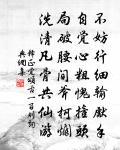 不妨行細輸手
自覺心粗愧撞頭
局破腰間斧柯爛
洗清凡骨共仙遊
釋正覺頌古一百則